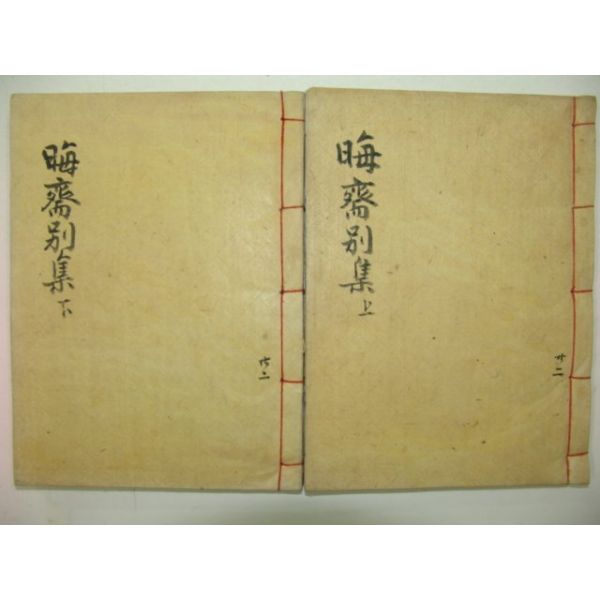 晦齋别集 上
共二
晦齋别集 下
共二